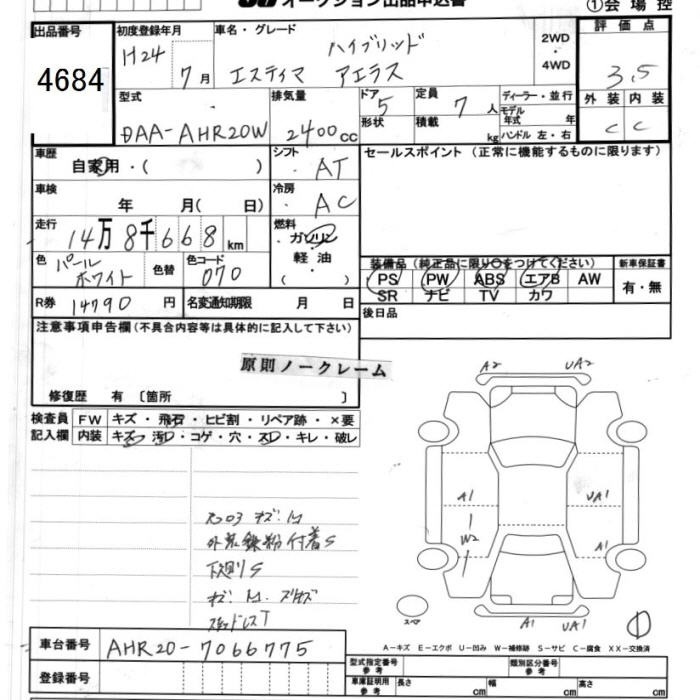 オークション出品申込書 ①会場控
出品番号 初度登録年月 車名・グレード 2WD ・ 4WD 評価点
4684 H24 7月 エスティマ ハイブリッド アエラス 3.5
型式 排気量 ドア 形状 定員 積載 ディーラー・並行 モデル年式 年 ハンドル 左・右 外装 内装
DAA-AHR20W 2400cc 5 7人 kg C C
車歴 自家用・( ) シフト AT セールスポイント (正常に機能するものに限ります)
車検 年 月( 日) 冷房 AC
走行 14万8千668km 燃料 ガソリン 軽油 ( )
色 パールホワイト 色替 色コード 070 装備品(純正品に限り○をつけてください) 新車保証書
PS PW ABS エアB AW 有・無
SR ナビ TV カワ
R券 14790円 名変通知期限 月 日 後日品
注意事項申告欄(不具合内容等は具体的に記入して下さい)
原則ノークレーム
修復歴 有 〔箇所 〕
検査員 FW キズ・飛石・ヒビ割・リペア跡・×要
記入欄 内装 キズ・汚レ・コゲ・穴・スレ・キレ・破レ
A2 UA2
A1 UA1
W2 A1
外装鉄粉付着S
下廻りS
スタッドレスT
スペア A1 UA1 ①
A-キズ E-エクボ U-凹み W-補修跡 S-サビ C-腐食 XX-交換済
車台番号 AHR20-7066775
型式指定番号 参考 類別区分番号 参考
登録番号 車庫証明用 参考 長さ cm 幅 cm 高さ cm